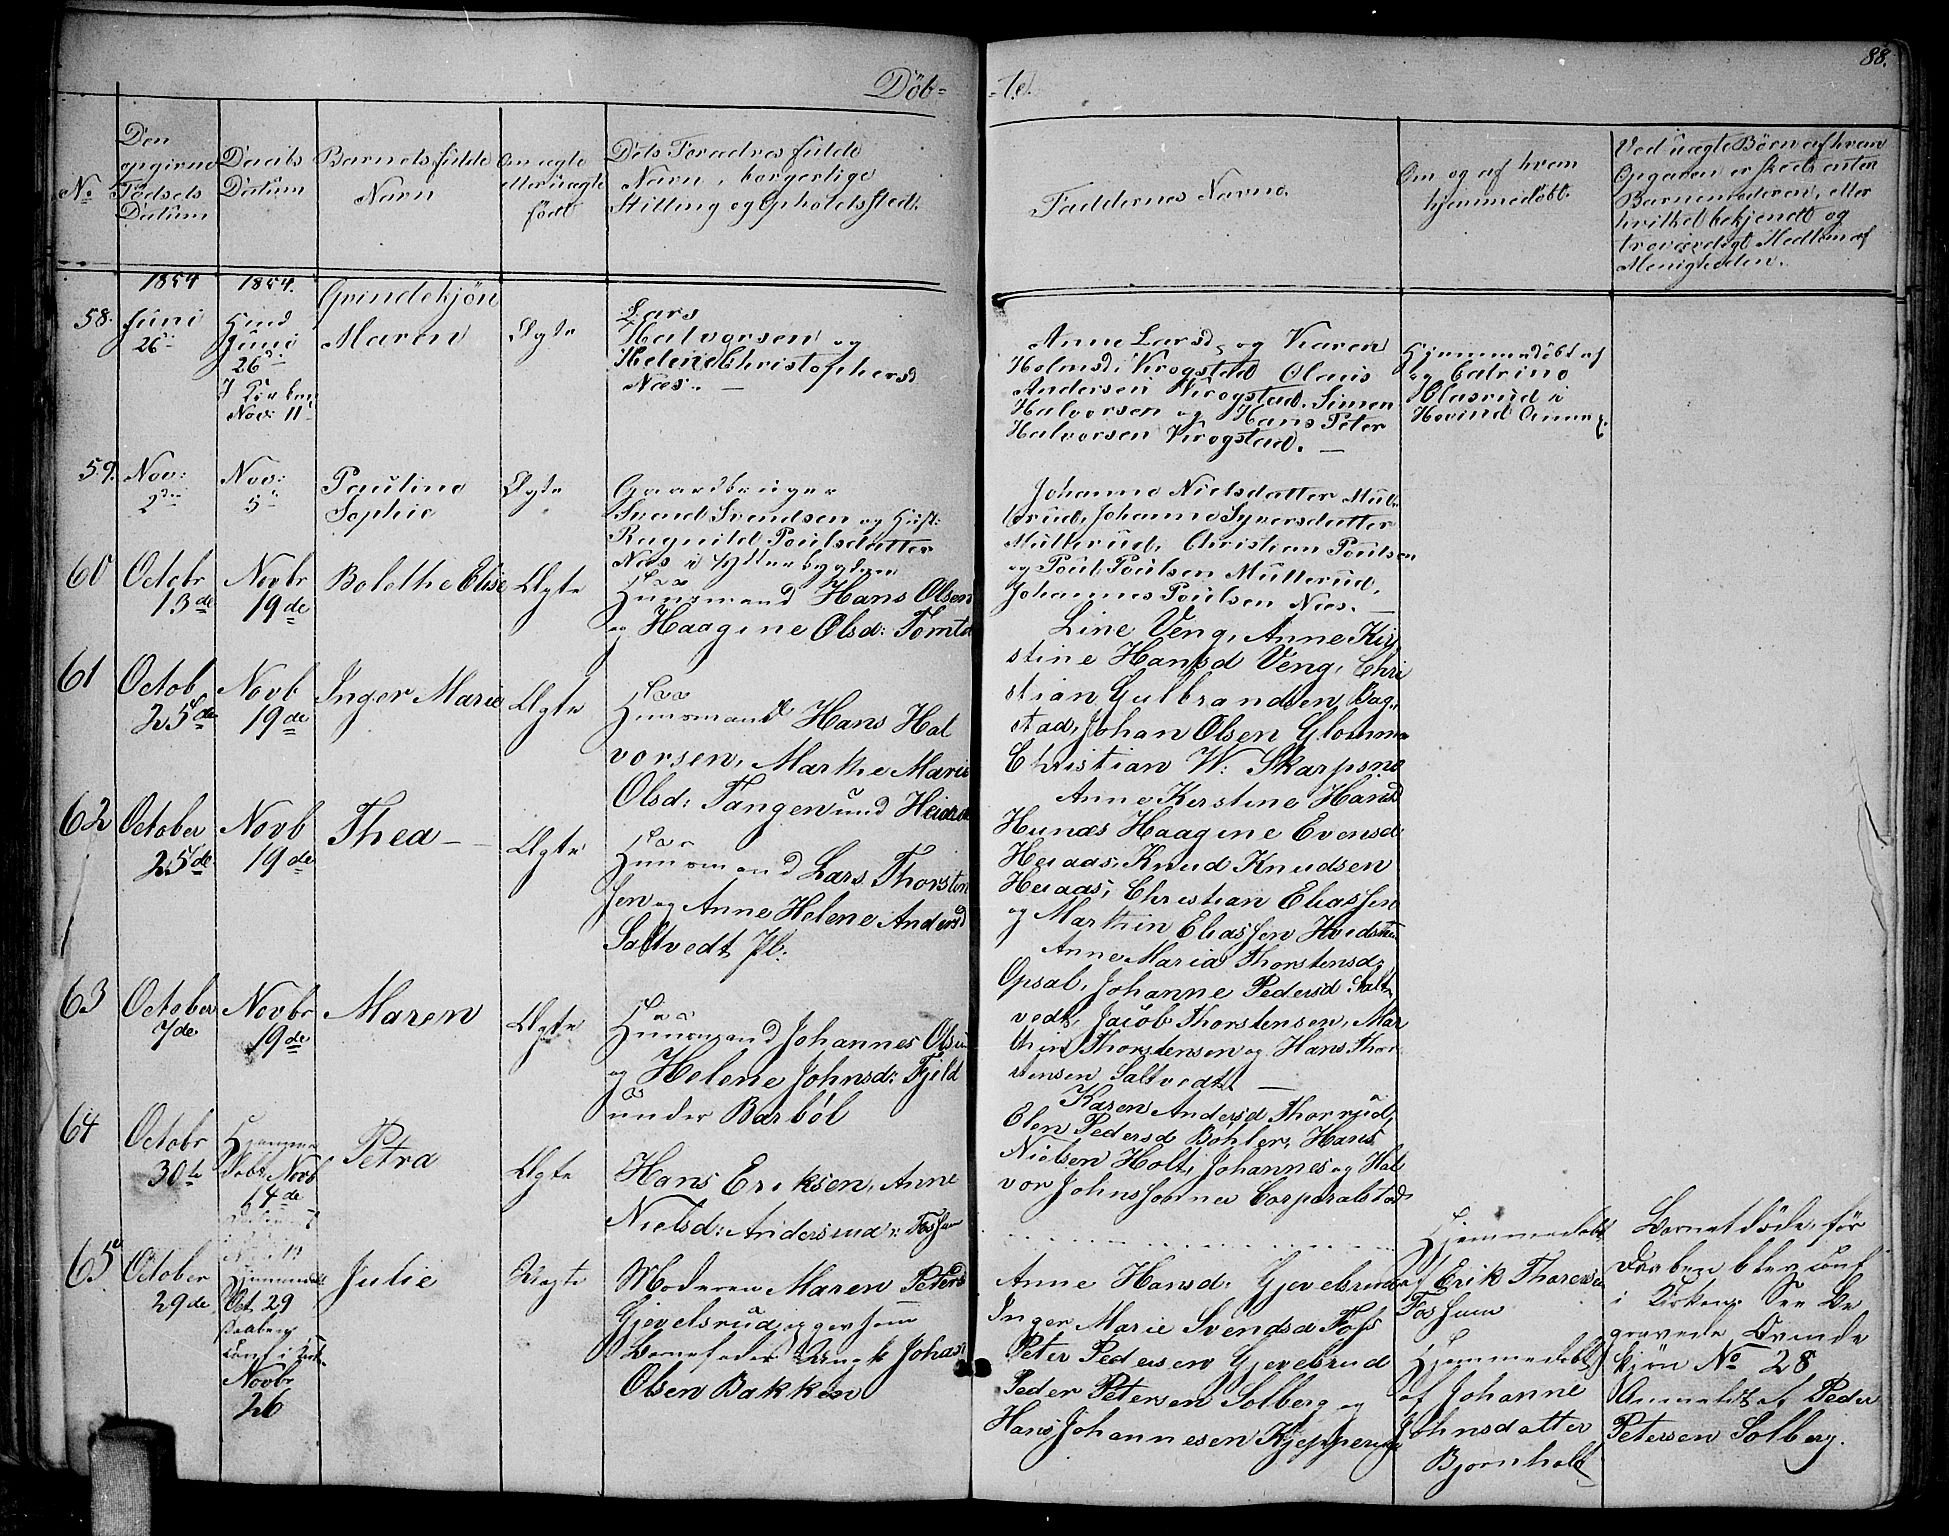 88.
Døb-
-te.
No
Den
opgivne
Fødsels
Datum
Daabs
Datum
Barnets fulde
Navn
Om ægte
eller uægte
født
Dets Forældres fulde
Navn, borgerlige
Stilling og Opholdssted.
Faddernes Navne.
Om og af hvem
hjemmedøbt.
Ved uægte Børn af hvem
Opgaven er skedt, enten
Barnemoderen, eller
hvilket bekjendt og
troværdigt Medlem af
Menigheden.
1854
1854.
Grindekjøn
58.
Juni
26
Juni
26
Nov: 11
Maren
Ægte
Lars
Halvorsen og
Helene Christophersd
Næs. —
Anne Larsd, og Karen
Holmsd, Krogstad Olaus
Andersen Krogstad. Simen
Halvorsen og Hans Peter
Halvorsen Krogstad. —
Hjemmedøbt af
og Catrine
Olasrud i
Hovind
59.
Nov:
2
Nov:
5
Pauline
Sophie
Ægte
Gaardbruger
Svend Svendsen og Hust:
Ragnild Poulsdatter
Næs i Ytterbygden
Johanne Nielsdatter Mul-
terud, Johanne Syversdatter
Multerud, Christian Poulsen
og Poul Poulsen Multerud,
Johannes Poulsen Næs. —
60
Octobr
13de
Novbr
19de
Bolethe Elise
Ægte
Huusmand Hans Olsen
og Haagine Olsd: Tomt
Line Veng, Anne Kir
stine Hansd Veng, Chri
stian Gulbrandsen Bag
stad, Johan Olsen Glomm
Christian W: Skarpsno
61
Octob
25de
Novb
19de
Inger Marie
Ægte
Huusmand Hans Hal
vorsen, Marthe Marie
Olsd: Tangen und
Anne Kerstine Hansd
Hunæs Haagine Evensd
Heiaas, Knud Knudsen
Heiaas, Christian Eliassen
og Marthin Eliassen
62
October
25de
Novb
19de
Thea —
Ægte
Huusmand Lars Thorsten
sen og Anne Helene Andersd
Saltvedt Pl:
Anne Maria Thorstensd,
Opsal, Johanne Pedersd Salt
vedt, Jacob Thorstensen, Mar
thin Thorstensen og Hans Thor
stensen Saltvedt. —
63
October
7de
Novbr
19de
Maren
Ægte
Huusmand Johannes Olsen
og Helene Johnsd: Fjeld
under Barbøl
Karen Andersd Thorrud,
Elen Pedersd Bøhler, Hans
Nielsen Holt, Johannes og Hal
vor Johnssønner Corporalstad
64
Octobr
30te
Hjemme
døbt Novb
14de
Petra
Ægte
Hans Eriksen, Anne
Nielsd: Andersrud v: Fossum
Hjemmedøbt
af Erik Thoresen
Fossum
Barnet døde, før
Daaben blev conf
i Kirken. See Be
gravede Grinde
kjøn No 28
65
October
29de
Hjemmedøbt
Oct 29
Daaben
conf i
Novbr
26
Julie
Uægte
Moderen Maren Petersd
Gjevelsrud, opgav som
Barnefader Ungk Johan
Olsen Bakken
Anne Hansd: Gjevelsrud
Inger Marie Svendsd Foss
Peter Pedersen Gjevelsrud
Peder Petersen Solberg og
Hans Johannesen
Hjemmedøbt
af Johanne
Johnsdatter
Bjørnholt
Anmeldt af Peder
Petersen Solberg.